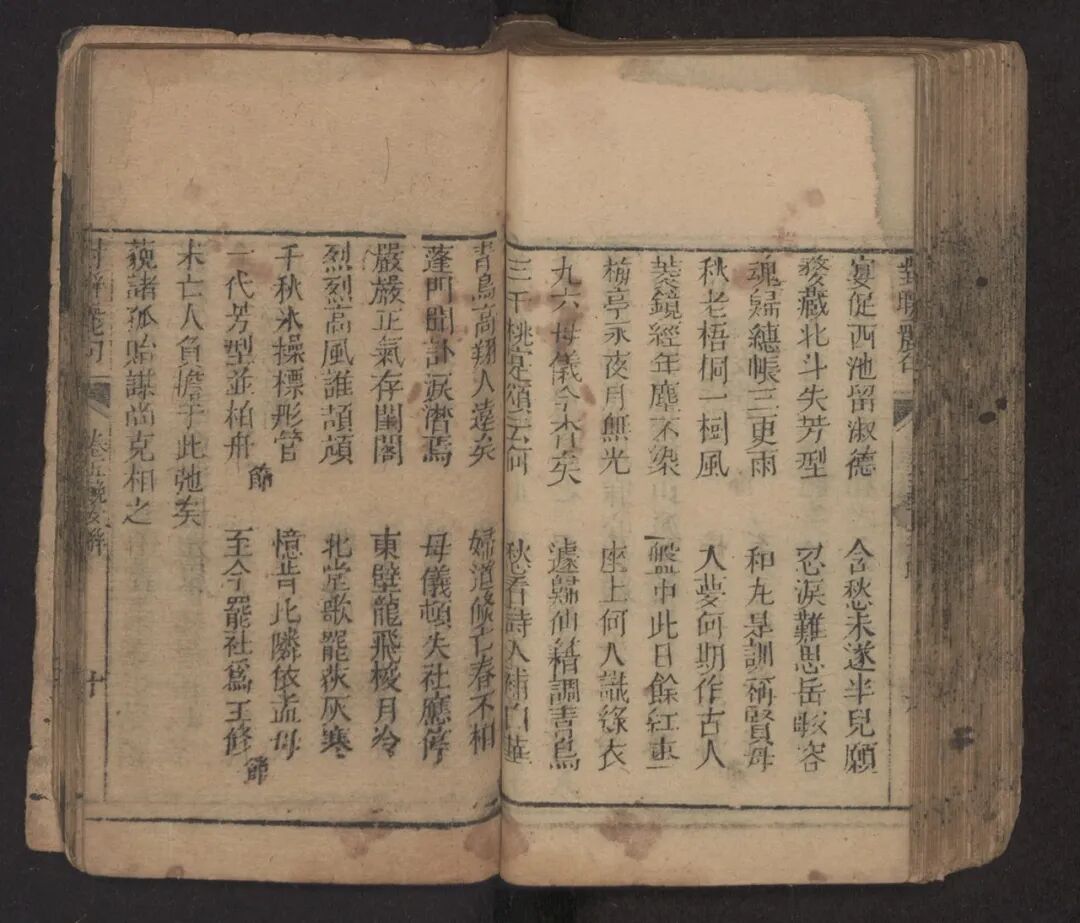 對聯
宴促西池留淑德 含愁未遂半兒願
婺藏北斗失芳型 忍淚難思岳敭容
魂歸繐帳三更雨 和丸是訓稱賢母
秋老梧桐一樹風 入夢何期作古人
粧鏡經年塵不染 盤中此日餘紅棗
梅亭永夜月無光 座上何人識綵衣
九六母儀今杳矣 遽歸仙籍調青鳥
三千桃宴頌云何 愁看詩人補白華
青鳥高翔人遠矣 婦道倏亡春不相
蓬門聞訃淚潸焉 母儀頓失社應停
嚴嚴正氣存閨閣 東壁龍飛梭月冷
烈烈高風誰頡頏 北堂歌罷荻灰寒
千秋氷操標彤管 憶昔比隣依孟母
一代芳型並柏舟 節 至今罷社爲王修 節
未亡人負擔于此弛矣
藐諸孤貽謀尚克相之
卷五 十